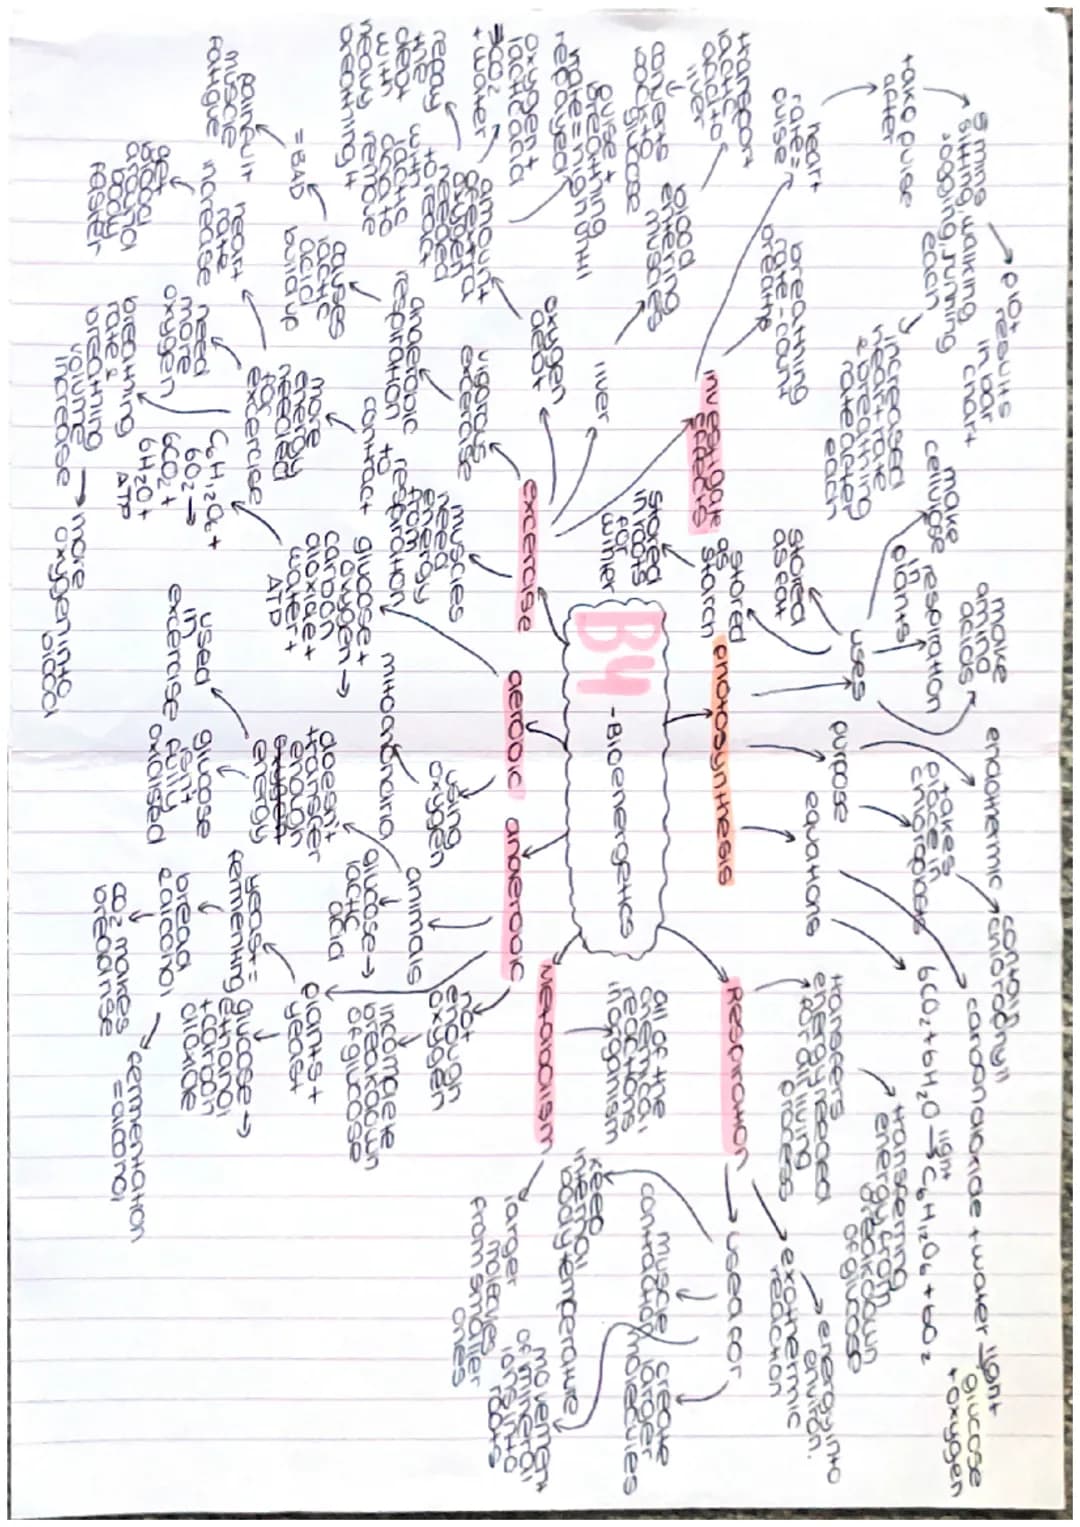 B4
-Bioenergetics
photosynthesis
uses
make
amino
acids
respiration
in
plants
make
cellulose
stored
as fat
stored
as
starch
stored
in roots
for
winter
purpose
endothermic
takes
place in
chloroplasts
contain
chlorophyll
equations
carbon dioxide + water light
glucose
+ oxygen
6CO2 + 6H2O light → C6H12O6 + 6O2
Respiration
transfers
energy needed
for all living
process
transferring
energy from
breakdown
of glucose
exothermic
reaction
energy into
environ.
used for
create
larger
molecules
muscle
contraction
movement
of mineral
ions into
roots
keep
internal
body temperature
Metabolism
all of the
chemical
reactions
in organism
larger
molecules
from smaller
ones
anaerobic
not
enough
oxygen
incomplete
breakdown
of glucose
plants +
yeast
glucose →
ethanol
+ carbon
dioxide
yeast =
fermenting
bread
& alcohol
CO2 makes
bread rise
fermentation
= alcohol
animals
glucose →
lactic
acid
doesn't
transfer
enough
energy
glucose
isn't
fully
oxidised
used
in
excercise
aerobic
using
oxygen
mitochondria
glucose +
oxygen →
carbon
dioxide +
water +
ATP
C6H12O6 +
6O2 →
6CO2 +
6H2O +
ATP
excercise
muscles
need
energy
from
respiration
to
contract
more
energy
needed
for
excercise
need
more
oxygen
breathing
rate &
breathing
volume
increase
more
oxygen into
blood
heart
rate
increase
get
blood
around
body
faster
vigorous
excercise
anaerobic
respiration
causes
lactic
acid
build up
= BAD
pain with
muscle
fatigue
oxygen
debt
amount
of extra
oxygen
needed
to react
with
lactic
acid to
remove
it
repay
the
debt
with
heavy
breathing
oxygen +
lactic acid
= CO2
+ water
pulse +
breathing
rate = high until
repayed
liver
blood
entering
muscles
transport
lactic
acid to
liver
converts
back to
glucose
investigate
effects
breathing
rate - count
breaths
heart
rate =
pulse
take pulse
after
5 mins
sitting, walking,
jogging, running
each
plot results
in bar
chart
increased
heart rate
& breathing
rate after
each